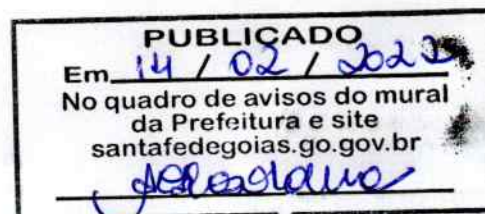 PUBLICADO
Em 14 / 02 / 2022
No quadro de avisos do mural
da Prefeitura e site
santafedegoias.go.gov.br